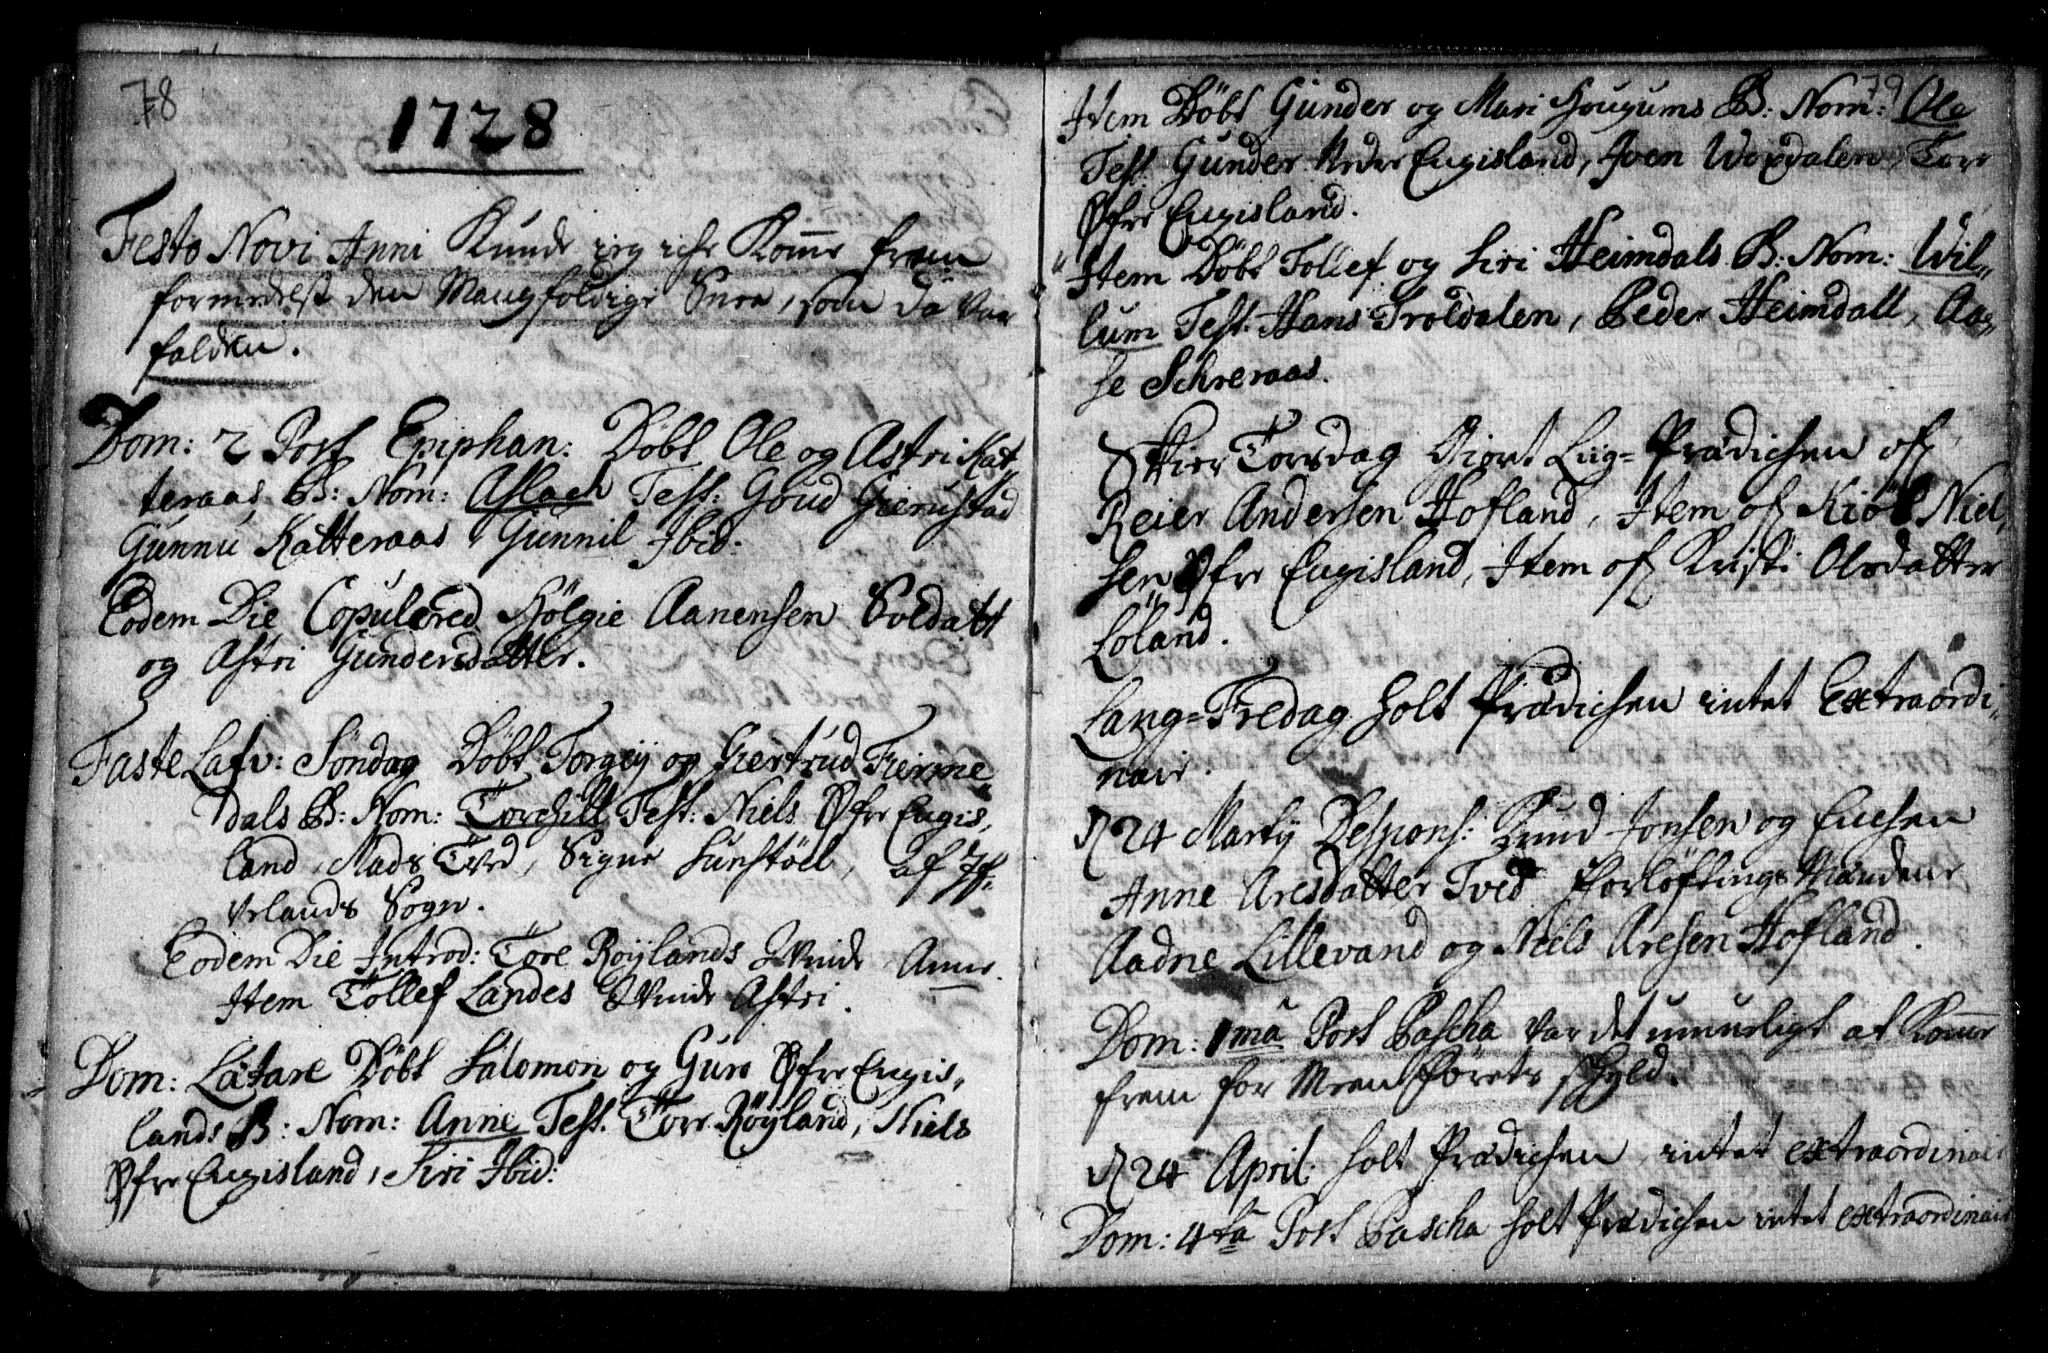 78
1728
Festo Novi Anni Kunde ieg iche Komme frem
formedelst den Mangfoldige Snee, som da var
falden.
Dom: 2 Post Epiphan: Døbt Ole og Astri Kat-
teraas B: Nom: Aslach Test: Goud Gierustad
Gunnu Katteraas, Gunnil Ibid:
Eodem Die Copulered Hölgie Aanensen Soldatt
og Astri Gundersdatter.
Faste Lafv: Søndag Døbt Torgeij og Giertrud Fierme
dals B: Nom: Torchill Test: Niels Øfre Eugis,
land, Mads Tved, Signe Sunstöel, af
Sogn.
Eodem Die Introd: Tore Röijlands Qvinde Anne.
Item Tollef Landes Qvinde Astri.
Dom: Lætare Døbt Salomon og Guro Øfre Eugis,
lands B: Nom: Anne Test. Tore Röijland, Niels
Øfre Eugisland, Siri Ibid:
79
Item Døbt Gunder og Mari Hougums B: Nom: Ole
Test. Gunder Nedre Eugisland, Joen Woxdalen, Tore
Øfre Eugisland.
Item Døbt Tollef og Siri Heimdals B: Nom: Wil-
lum Test. Hans Troldalen, Peder Heimdall, Aa-
se Schreraas.
Skier Torsdag Giort Liig-Prædichen of
Reier Andersen Hofland, Item of Kiöl Niel,
sen Øfre Eugisland, Item of Kristi Olsdatter
Löland.
Lang-Fredag holt Prædichen intet Extraordi-
nair.
D 24 Martij Despons: Knud Jonsen og Enchen
Anne Aresdatter Tved Forløftings Mændene
Aadne Lillevand og Niels Aresen Hofland.
Dom: 1mâ Post Pascha var det umueligt at Komme
frem for Meenførets skyld.
D 24 April. holt Prædichen intet extraordinair
Dom: 4tâ Post Pascha holt Prædichen intet extraordinair